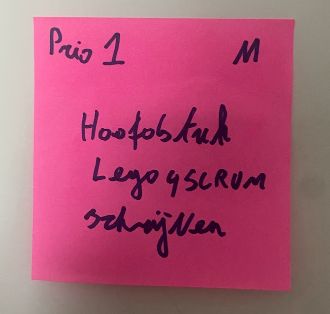 Prio 1 M
Hoofdstuk
Lego4SCRUM
schrijven